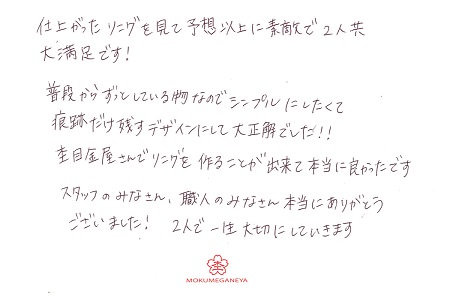 仕上がったリングを見て予想以上に素敵で2人共
大満足です!
普段からずっとしている物なのでシンプルにしたくて
痕跡だけ残すデザインにして大正解でした!!
杢目金屋さんでリングを作ることが出来て本当に良かったです
スタッフのみなさん、職人のみなさん本当にありがとう
ございました! 2人で一生大切にしていきます
MOKUMEGANEYA